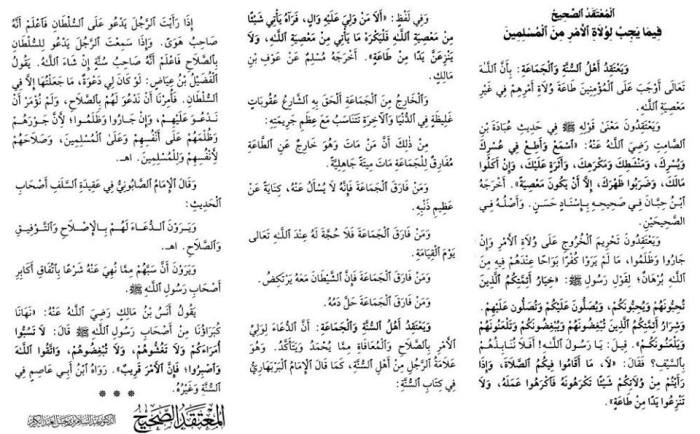 المُعْتَقَدُ الصَّحِيحُ
فِيمَا يَجِبُ لِوُلَاةِ الْأَمْرِ مِنَ الْمُسْلِمِينَ
وَيَعْتَقِدُ أَهْلُ السُّنَّةِ وَالْجَمَاعَةِ: بِأَنَّ اللَّهَ
تَعَالَى أَوْجَبَ عَلَى الْمُؤْمِنِينَ طَاعَةَ وُلَاةِ أَمْرِهِمْ فِي غَيْرِ
مَعْصِيَةِ اللَّهِ.
وَيَعْتَقِدُونَ مَعْنَى قَوْلِهِ ﷺ فِي حَدِيثِ عُبَادَةَ بْنِ
الصَّامِتِ رَضِيَ اللَّهُ عَنْهُ: «اسْمَعْ وَأَطِعْ فِي عُسْرِكَ
وَيُسْرِكَ، وَمَنْشَطِكَ وَمَكْرَهِكَ، وَأَثَرَةٍ عَلَيْكَ، وَإِنْ أَكَلُوا
مَالَكَ، وَضَرَبُوا ظَهْرَكَ، إِلَّا أَنْ يَكُونَ مَعْصِيَةً». أَخْرَجَهُ
ابْنُ حِبَّانَ فِي صَحِيحِهِ بِإِسْنَادٍ حَسَنٍ. وَأَصْلُهُ فِي
الصَّحِيحَيْنِ.
وَيَعْتَقِدُونَ تَحْرِيمَ الْخُرُوجِ عَلَى وُلَاةِ الْأَمْرِ وَإِنْ
جَارُوا وَظَلَمُوا، مَا لَمْ يَرَوْا كُفْرًا بَوَاحًا عِنْدَهُمْ فِيهِ مِنَ
اللَّهِ بُرْهَانٌ؛ لِقَوْلِ رَسُولِ ﷺ: «خِيَارُ أَئِمَّتِكُمُ الَّذِينَ
تُحِبُّونَهُمْ وَيُحِبُّونَكُمْ، وَيُصَلُّونَ عَلَيْكُمْ وَتُصَلُّونَ عَلَيْهِمْ.
وَشِرَارُ أَئِمَّتِكُمُ الَّذِينَ تُبْغِضُونَهُمْ وَيُبْغِضُونَكُمْ وَتَلْعَنُونَهُمْ
وَيَلْعَنُونَكُمْ». قِيلَ: يَا رَسُولَ اللَّهِ! أَفَلَا نُنَابِذُهُمْ
بِالسَّيْفِ؟ فَقَالَ: «لَا، مَا أَقَامُوا فِيكُمُ الصَّلَاةَ، وَإِذَا
رَأَيْتُمْ مِنْ وُلَاتِكُمْ شَيْئًا تَكْرَهُونَهُ فَاكْرَهُوا عَمَلَهُ، وَلَا
تَنْزِعُوا يَدًا مِنْ طَاعَةٍ».
وَفِي لَفْظٍ: «أَلَا مَنْ وَلِيَ عَلَيْهِ وَالٍ، فَرَآهُ يَأْتِي شَيْئًا
مِنْ مَعْصِيَةِ اللَّهِ فَلْيَكْرَهْ مَا يَأْتِي مِنْ مَعْصِيَةِ اللَّهِ، وَلَا
يَنْزِعَنَّ يَدًا مِنْ طَاعَةٍ». أَخْرَجَهُ مُسْلِمٌ عَنْ عَوْفِ بْنِ
مَالِكٍ.
وَالْخَارِجُ مِنَ الْجَمَاعَةِ أَلْحَقَ بِهِ الشَّارِعُ عُقُوبَاتٍ
غَلِيظَةً فِي الدُّنْيَا وَالْآخِرَةِ تَتَنَاسَبُ مَعَ عِظَمِ جَرِيمَتِهِ:
مِنْ ذَلِكَ أَنَّ مَنْ مَاتَ وَهُوَ خَارِجٌ عَنِ الطَّاعَةِ
مُفَارِقٌ لِلْجَمَاعَةِ مَاتَ مِيتَةً جَاهِلِيَّةً.
وَمَنْ فَارَقَ الْجَمَاعَةَ فَإِنَّهُ لَا يُسْأَلُ عَنْهُ، كِنَايَةً عَنْ
عَظِيمِ ذَنْبِهِ.
وَمَنْ فَارَقَ الْجَمَاعَةَ فَلَا حُجَّةَ لَهُ عِنْدَ اللَّهِ تَعَالَى
يَوْمَ الْقِيَامَةِ.
وَمَنْ فَارَقَ الْجَمَاعَةَ فَإِنَّ الشَّيْطَانَ مَعَهُ يَرْتَكِضُ.
وَمَنْ فَارَقَ الْجَمَاعَةَ حَلَّ دَمُهُ.
وَيَعْتَقِدُ أَهْلُ السُّنَّةِ وَالْجَمَاعَةِ: أَنَّ الدُّعَاءَ لِوَلِيِّ
الْأَمْرِ بِالصَّلَاحِ وَالْمُعَافَاةِ مِمَّا يُحْمَدُ وَيَتَأَكَّدُ. وَهُوَ
عَلَامَةُ الرَّجُلِ مِنْ أَهْلِ السُّنَّةِ، كَمَا قَالَ الْإِمَامُ الْبَرْبَهَارِيُّ
فِي كِتَابِ السُّنَّةِ:
إِذَا رَأَيْتَ الرَّجُلَ يَدْعُو عَلَى السُّلْطَانِ فَاعْلَمْ أَنَّهُ
صَاحِبُ هَوًى. وَإِذَا سَمِعْتَ الرَّجُلَ يَدْعُو لِلسُّلْطَانِ
بِالصَّلَاحِ فَاعْلَمْ أَنَّهُ صَاحِبُ سُنَّةٍ إِنْ شَاءَ اللَّهُ. يَقُولُ
الْفُضَيْلُ بْنُ عِيَاضٍ: لَوْ كَانَ لِي دَعْوَةٌ، مَا جَعَلْتُهَا إِلَّا فِي
السُّلْطَانِ. فَأُمِرْنَا أَنْ نَدْعُوَ لَهُمْ بِالصَّلَاحِ، وَلَمْ نُؤْمَرْ أَنْ
نَدْعُوَ عَلَيْهِمْ، وَإِنْ جَارُوا وَظَلَمُوا؛ لِأَنَّ جَوْرَهُمْ
وَظُلْمَهُمْ عَلَى أَنْفُسِهِمْ وَعَلَى الْمُسْلِمِينَ، وَصَلَاحَهُمْ
لِأَنْفُسِهِمْ وَلِلْمُسْلِمِينَ. اهـ.
وَقَالَ الْإِمَامُ الصَّابُونِيُّ فِي عَقِيدَةِ السَّلَفِ أَصْحَابِ
الْحَدِيثِ:
وَيَرَوْنَ الدُّعَاءَ لَهُمْ بِالْإِصْلَاحِ وَالتَّوْفِيقِ
وَالصَّلَاحِ. اهـ.
وَيَرَوْنَ أَنَّ سَبَّهُمْ مِمَّا نُهِيَ عَنْهُ شَرْعًا بِاتِّفَاقِ أَكَابِرِ
أَصْحَابِ رَسُولِ اللَّهِ ﷺ.
يَقُولُ أَنَسُ بْنُ مَالِكٍ رَضِيَ اللَّهُ عَنْهُ: «نَهَانَا
كُبَرَاؤُنَا مِنْ أَصْحَابِ رَسُولِ اللَّهِ ﷺ قَالَ: لَا تَسُبُّوا
أُمَرَاءَكُمْ وَلَا تَغُشُّوهُمْ، وَلَا تُبْغِضُوهُمْ، وَاتَّقُوا اللَّهَ
وَاصْبِرُوا؛ فَإِنَّ الْأَمْرَ قَرِيبٌ». رَوَاهُ ابْنُ أَبِي عَاصِمٍ فِي
السُّنَّةِ وَغَيْرُهُ.
* * *
المُعْتَقَدُ الصَّحِيحُ